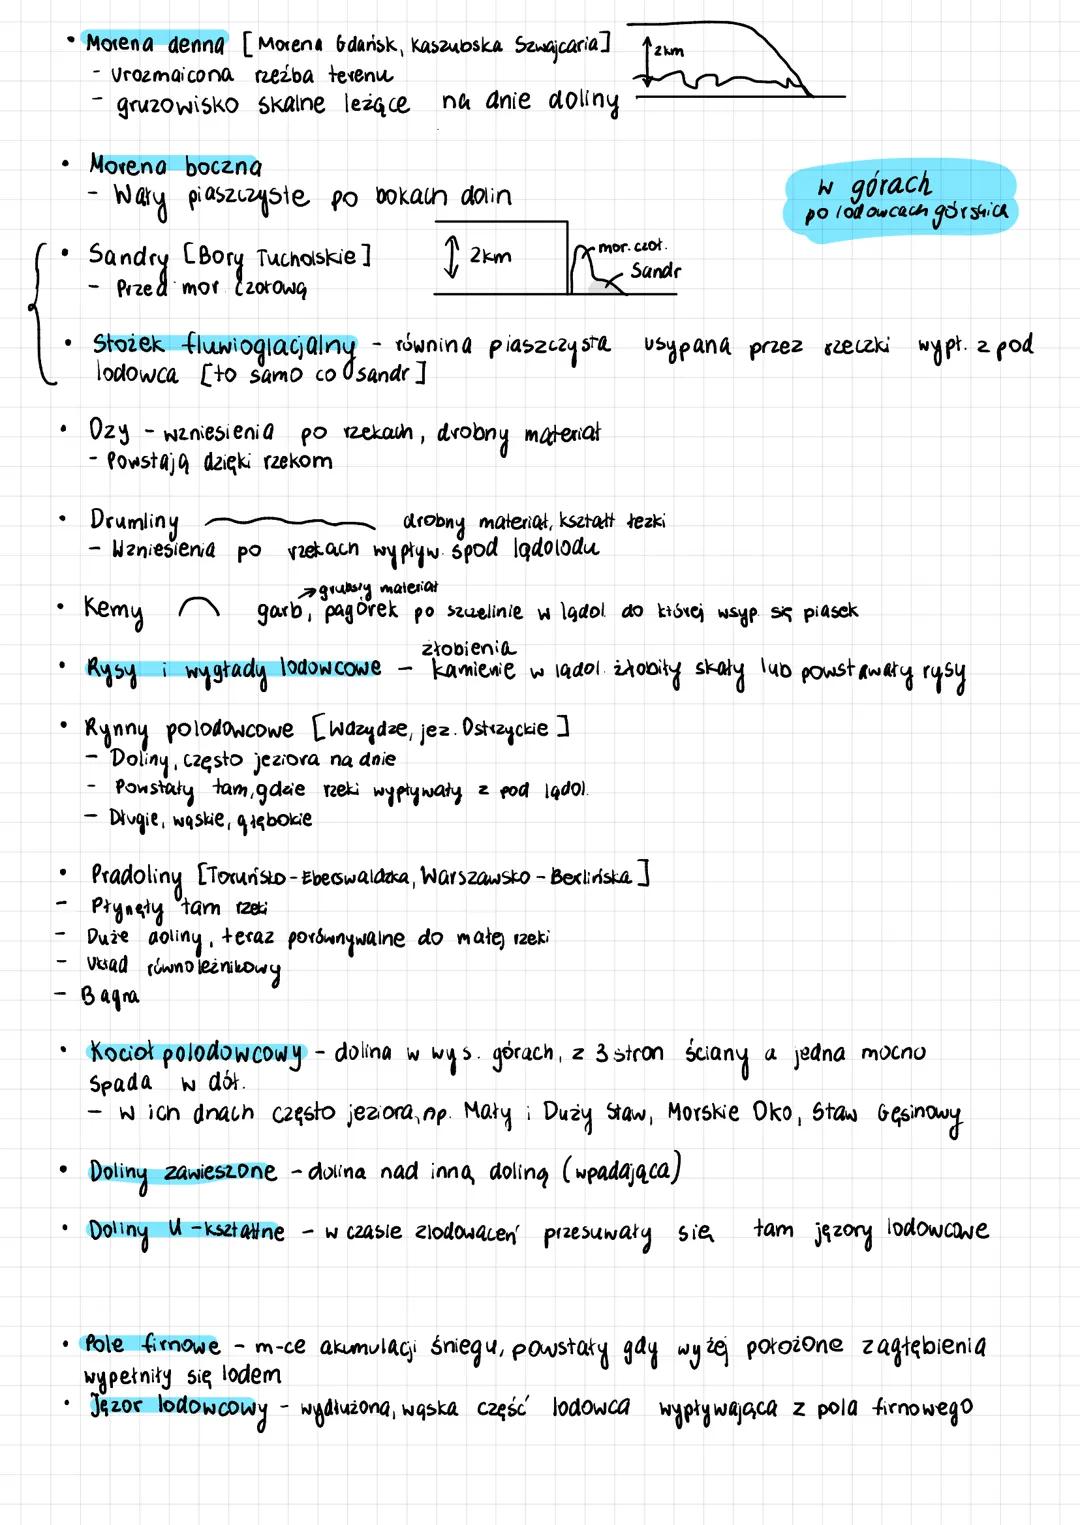 • Morena denna [Morena Gdańsk, Kaszubska Szwajcaria]
2km
- Urozmaicona rzeźba terenu
- gruzowisko skalne leżące na dnie doliny
• Morena boczna
- Wały piaszczyste po bokach dolin
w górach
po lodowcach górskich
• Sandry [Bory Tucholskie]
- Przed mor. czołową
2km
mor. czoł.
Sandr
• Stożek fluwioglacjalny - równina piaszczysta usypana przez rzeczki wypł. z pod
lodowca [to samo co sandr]
• Ozy - wzniesienia po rzekach, drobny materiał
- Powstają dzięki rzekom
• Drumliny drobny materiał, kształt łezki
- Wzniesienia po rzekach wypływ. spod lądolodu
→ grubszy materiał
• Kemy garb, pagórek po szczelinie w lądol. do której wsyp. się piasek
złobienia
• Rysy i wygłady lodowcowe - kamienie w lądol. żłobiły skały lub powstawały rysy
• Rynny polodowcowe [Wdzydze, jez. Ostrzyckie]
- Doliny, często jeziora na dnie
- Powstały tam, gdzie rzeki wypływały z pod lądol.
- Długie, wąskie, głębokie
• Pradoliny [Toruńsko-Eberswaldzka, Warszawsko-Berlińska]
- Płynęły tam rzeki
- Duże doliny, teraz porównywalne do małej rzeki
- Układ równoleżnikowy
- Bagna
• Kocioł polodowcowy - dolina w wys. górach, z 3 stron ściany a jedna mocno
spada w dół.
- w ich dnach często jeziora, np. Mały i Duży Staw, Morskie Oko, Staw Gęsinowy
• Doliny zawieszone - dolina nad inną doliną (wpadająca)
• Doliny U-kształtne - w czasie zlodowaceń przesuwały się tam jęzory lodowcowe
• Pole firnowe - m-ce akumulacji śniegu, powstały gdy wyżej położone zagłębienia
wypełniły się lodem
• Jęzor lodowcowy - wydłużona, wąska część lodowca wypływająca z pola firnowego